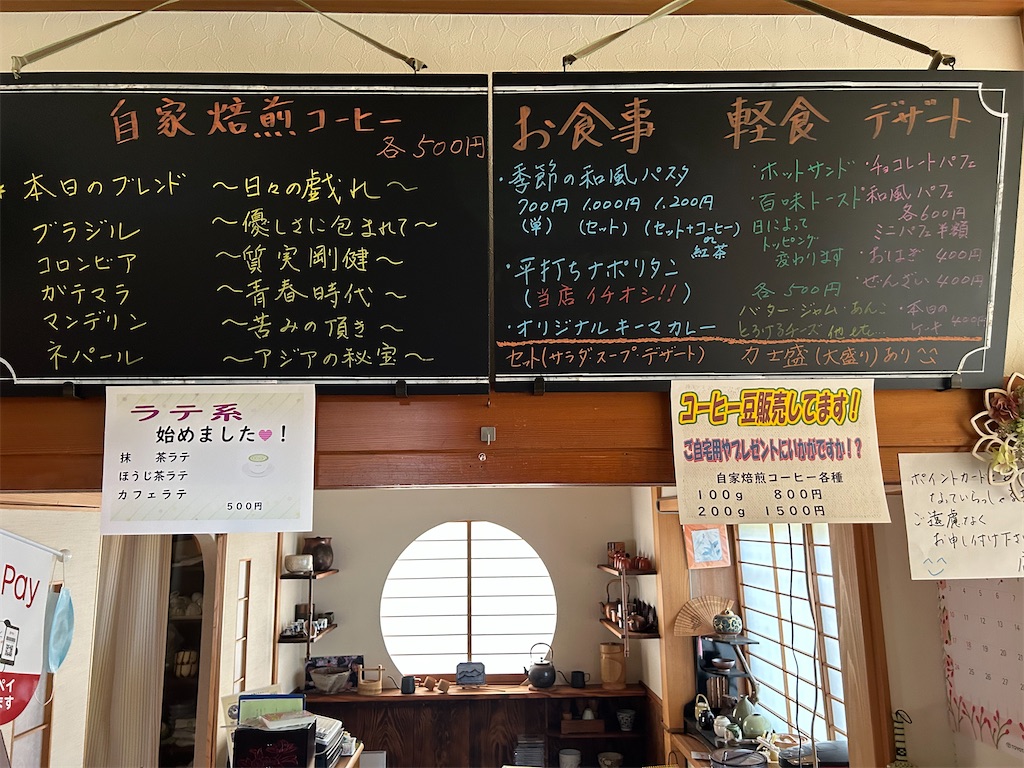 自家焙煎コーヒー
各500円
* 本日のブレンド 〜日々の戯れ〜
ブラジル 〜優しさに包まれて〜
コロンビア 〜質実剛健〜
ガテマラ 〜青春時代〜
マンデリン 〜苦みの頂き〜
ネパール 〜アジアの秘宝〜
お食事 軽食 デザート
・季節の和風パスタ
700円 1.000円 1.200円
(単) (セット) (セット+コーヒー)
or
紅茶
・平打ちナポリタン
(当店イチオシ!!)
・オリジナルキーマカレー
・ホットサンド
・百味トースト
日によって
トッピング
変わります
各500円
バター・ジャム・あんこ
とろけるチーズ 他 etc...
・チョコレートパフェ
・和風パフェ
各600円
ミニパフェ半額
・おはぎ 400円
・ぜんざい 400円
・本日の
ケーキ 400円
セット(サラダ・スープ・デザート) 力士盛(大盛り)あり
ラテ系
始めました♥!
抹 茶ラテ
ほうじ茶ラテ
カフェラテ
500円
コーヒー豆販売してます!
ご自宅用やプレゼントにいかがですか!?
自家焙煎コーヒー各種
100g 800円
200g 1500円
ポイントカード
なっていらっしゃ
ご遠慮なく
お申し付け下さ
Pay
ペイ
ます